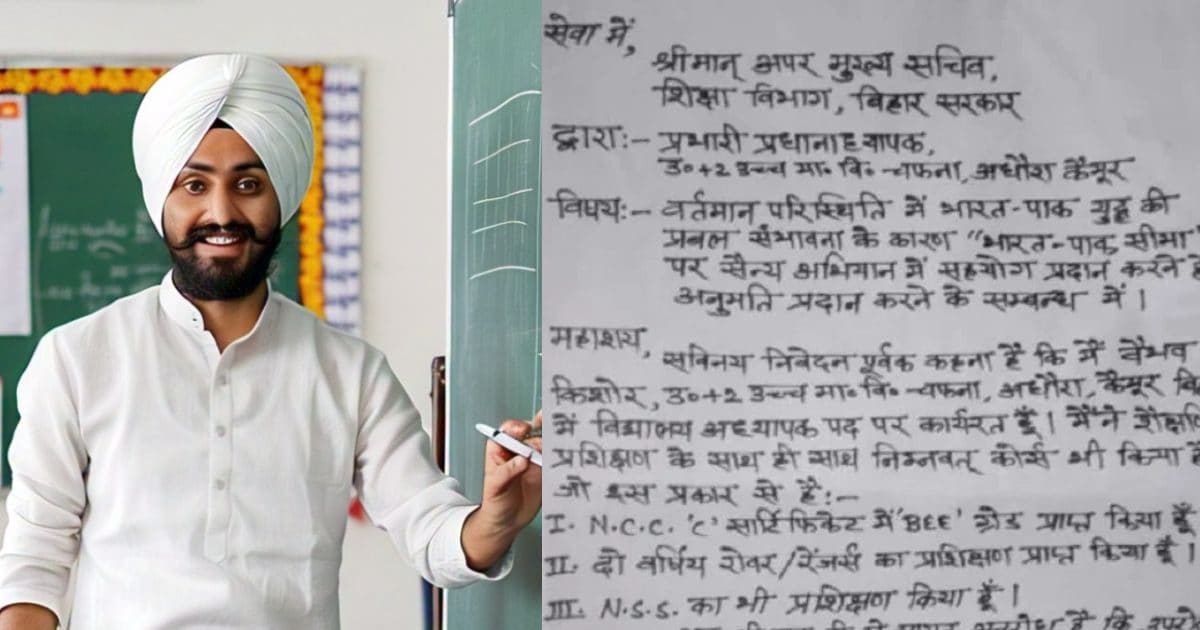 सेवा में,
श्रीमान् अपर मुख्य सचिव,
शिक्षा विभाग, बिहार सरकार
द्वाराः- प्रभारी प्रधानाध्यापक,
उ०+2 उच्च मा० वि०-चफना, अधौरा कैमूर
विषयः- वर्तमान परिस्थिति में भारत-पाक युद्ध की
प्रबल संभावना के कारण "भारत-पाक सीमा"
पर सैन्य अभियान में सहयोग प्रदान करने
अनुमति प्रदान करने के सम्बन्ध में।
महाशय,
सविनय निवेदन पूर्वक कहना है कि मैं वैभव
किशोर, उ०+2 उच्च मा० वि०-चफना, अधौरा, कैमूर
में विद्यालय अध्यापक पद पर कार्यरत हूँ। मैंने
प्रशिक्षण के साथ ही साथ निम्नवत् कोर्स भी किया
जो इस प्रकार से है:-
I. N.C.C. 'C' सार्टिफिकेट में 'BEE' ग्रेड प्राप्त किया हूँ
II. दो वर्षिय रोवर/रेंजर्स का प्रशिक्षण प्राप्त किया हूँ।
III. N.S.S. का भी प्रशिक्षण किया हूँ।